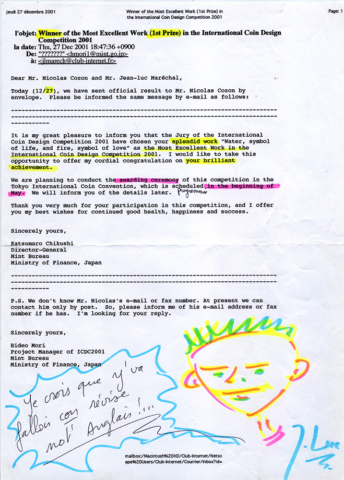 jeudi 27 décembre 2001
Winner of the Most Excellent Work (1st Prize) in
the International Coin Design Competition 2001
Page: 1
l'objet: Winner of the Most Excellent Work (1st Prize) in the International Coin Design
Competition 2001
la date: Thu, 27 Dec 2001 18:47:36 +0900
De: "????????" <hmori1@mint.go.jp>
à: <jlmarech@club-internet.fr>
Dear Mr. Nicolas Cozon and Mr. Jean-luc Maréchal,
Today (12/27), we have sent official result to Mr. Nicolas Cozon by
envelope. Please be informed the same message by e-mail as follows:
It is my great pleasure to inform you that the Jury of the International
Coin Design Competition 2001 have chosen your splendid work "Water, symbol
of life, and fire, symbol of love" as the Most Excellent Work in the
International Coin Design Competition 2001. I would like to take this
opportunity to offer my cordial congratulation on your brilliant
achievement.
We are planning to conduct the awarding ceremony of this competition in the
Tokyo International Coin Convention, which is scheduled in the beginning of
May. We will inform you of the details later.
Thank you very much for your participation in this competition, and I offer
you my best wishes for continued good health, happiness and success.
Sincerely yours,
Katsumaro Chikushi
Director-General
Mint Bureau
Ministry of Finance, Japan
P.S. We don't know Mr. Nicolas's e-mail or fax number. At present we can
contact him only by post. So, please inform me of his e-mail address or fax
number if he has. I'm looking for your reply.
Sincerely yours,
Hideo Mori
Project Manager of ICDC2001
Mint Bureau
Ministry of Finance, Japan
Je crois que j'y va
falloir con révise
not' Anglais!...
J. Luc
mailbox:/Macintosh%20HD/Club-Internet/Netsc
ape%20Users/Club-Internet/Courrier/Inbox?id=